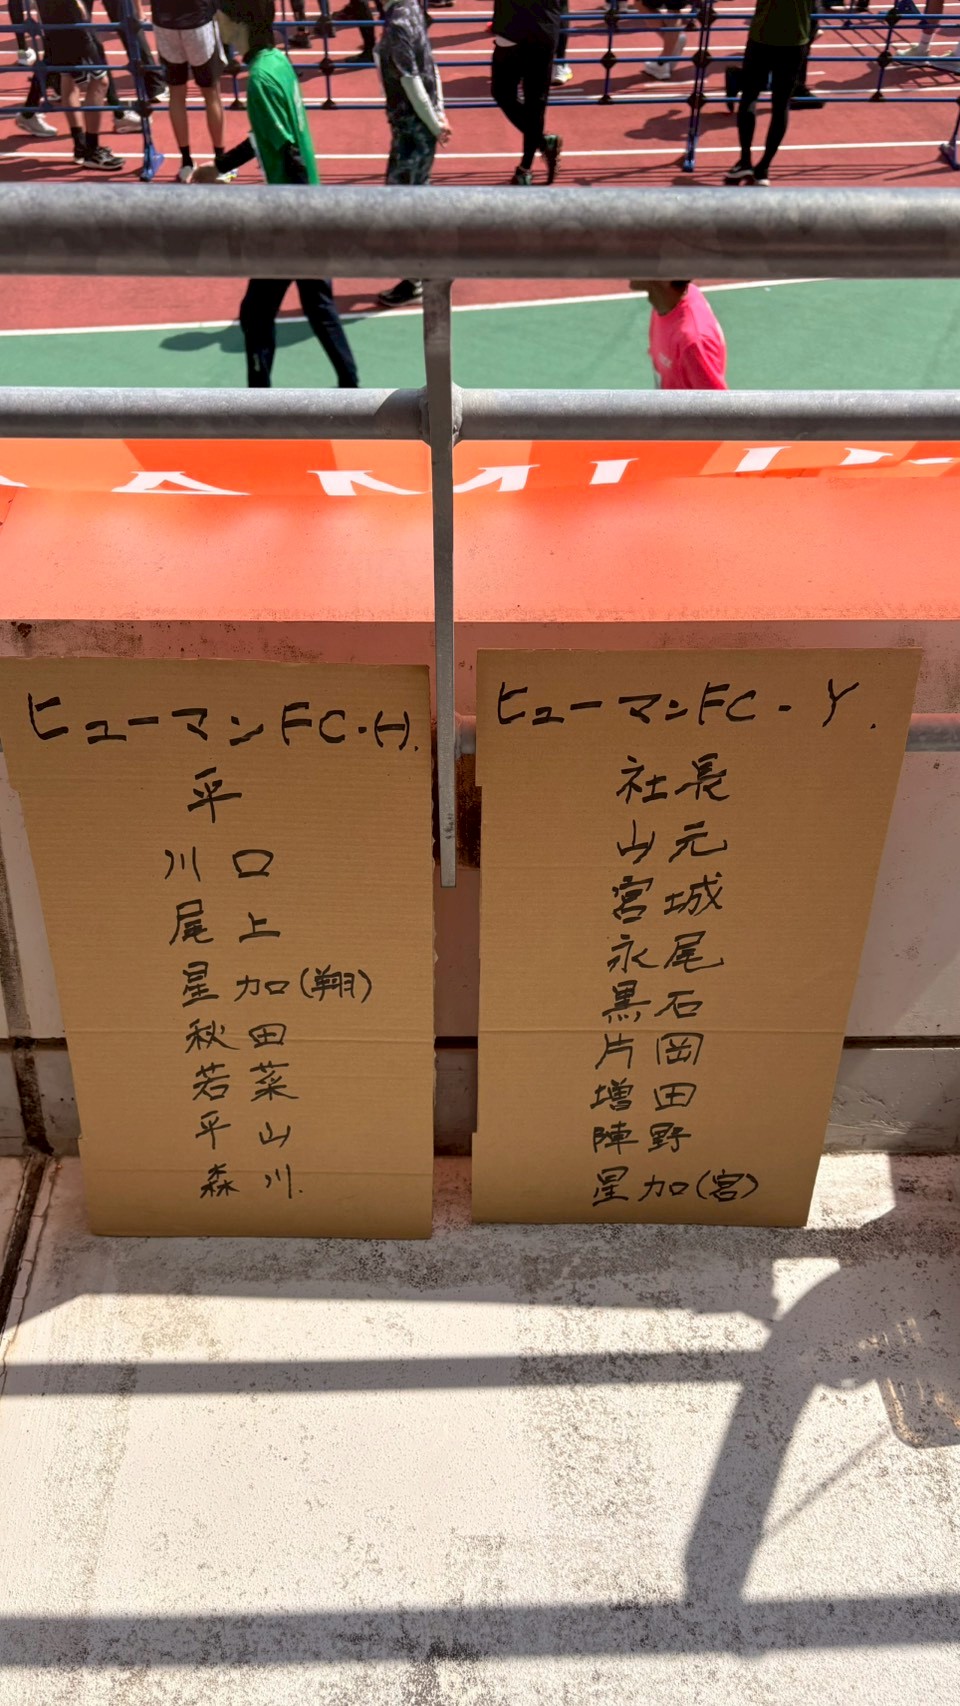 ヒューマンFC・H.
平
川口
尾上
星加(翔)
秋田
若菜
平山
森川.
ヒューマンFC-Y.
社長
山元
宮城
永尾
黒石
片岡
増田
陣野
星加(宮)